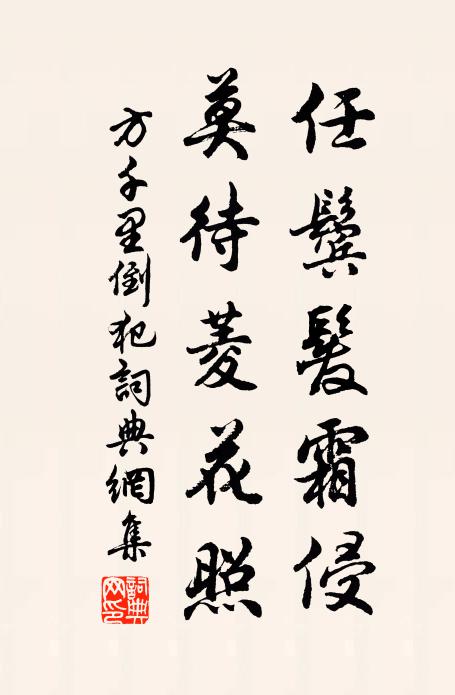 任鬢髮霜侵
莫待菱花照
方千里倒犯詞典網集
詞典網印